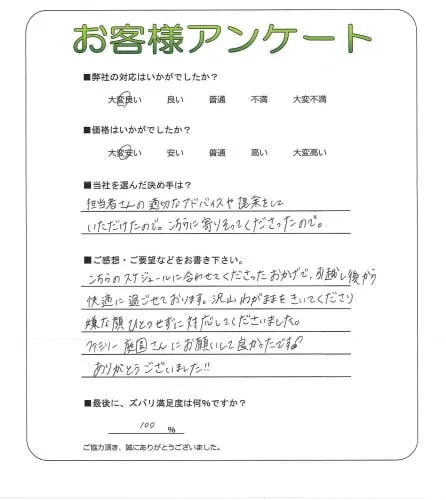 お客様アンケート
■弊社の対応はいかがでしたか？
大変良い 良い 普通 不満 大変不満
■価格はいかがでしたか？
大変安い 安い 普通 高い 大変高い
■当社を選んだ決め手は？
担当者さんの適切なアドバイスや提案をして
いただけたので。こちらに寄りそってくださったので。
■ご感想・ご要望などをお書き下さい。
こちらのスケジュールに合わせてくださったおかげで、引越し後から
快適に過ごせております。沢山わがままをきいてくださり
嫌な顔ひとつせずに対応してくださいました。
ファミリー庭園さんにお願いして良かったです
ありがとうございました!!
■最後に、ズバリ満足度は何%ですか？
100 %
ご協力頂き、誠にありがとうございました。